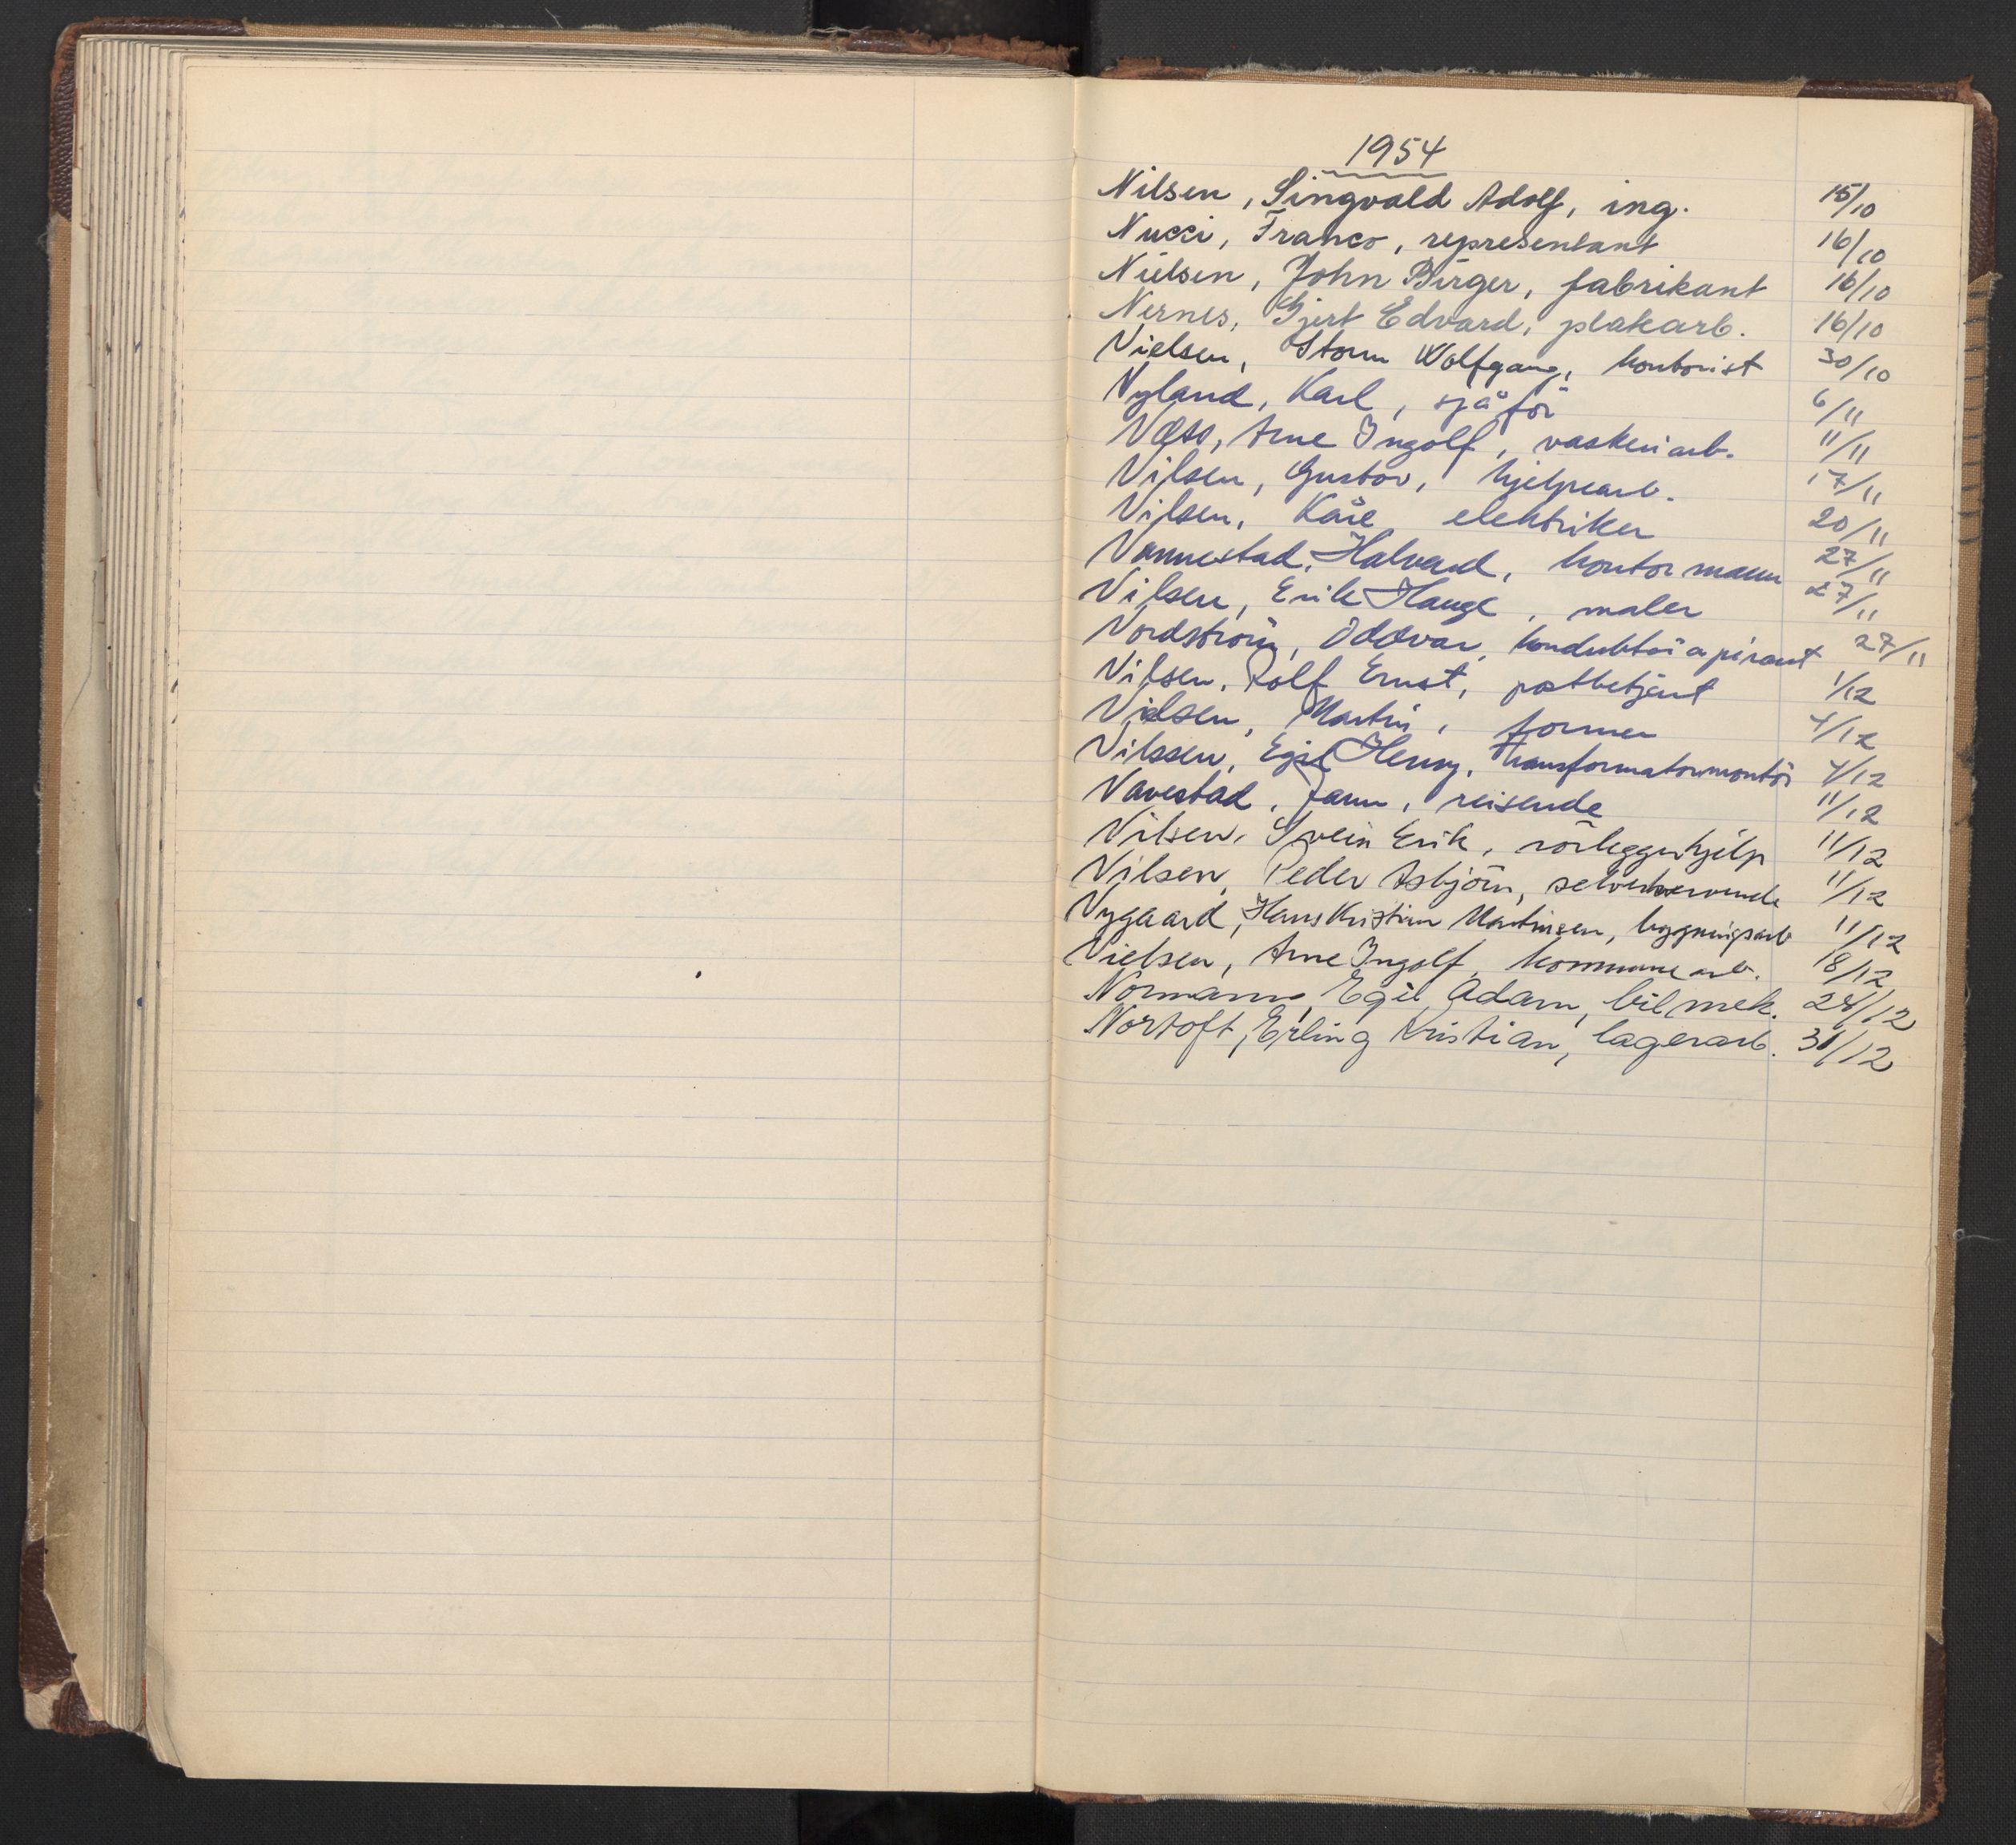 1954
Nilsen, Singvald Adolf, ing. 15/10
Nucci, Franco, representant 16/10
Nielsen, John Birger, fabrikant 16/10
Nernes, Gjert Edvard, platearb. 16/10
Nielsen, Storm Wolfgang, kontorist 30/10
Nyland, Karl, sjåför 6/11
Næss, Arne Ingolf, vaskeriarb. 11/11
Nilsen, Gustav, hjelpearb. 17/11
Nilsen, Kåre, elektriker 20/11
Nannestad, Halvard, kontormann 27/11
Nilsen, Erik Hauge, maler 27/11
Nordström, Oddvar, konduktöraspirant 27/11
Nilsen, Rolf Ernst, postbetjent 1/12
Nielsen, Martin, former 4/12
Nilssen, Egil Henry, Transformatormontör 4/12
Navestad, Jann, reisende 11/12
Nilsen, Svein Erik, rörleggerhjelp 11/12
Nilsen, Peder Asbjörn, selverhvervende 11/12
Nygaard, Hans Kristian Martinsen, bygningsarb 11/12
Nielsen, Arne Ingolf, kommunearb. 18/12
Normann, Egil Adam, bilmek. 28/12
Nortoft, Erling Kristian, lagerarb. 31/12